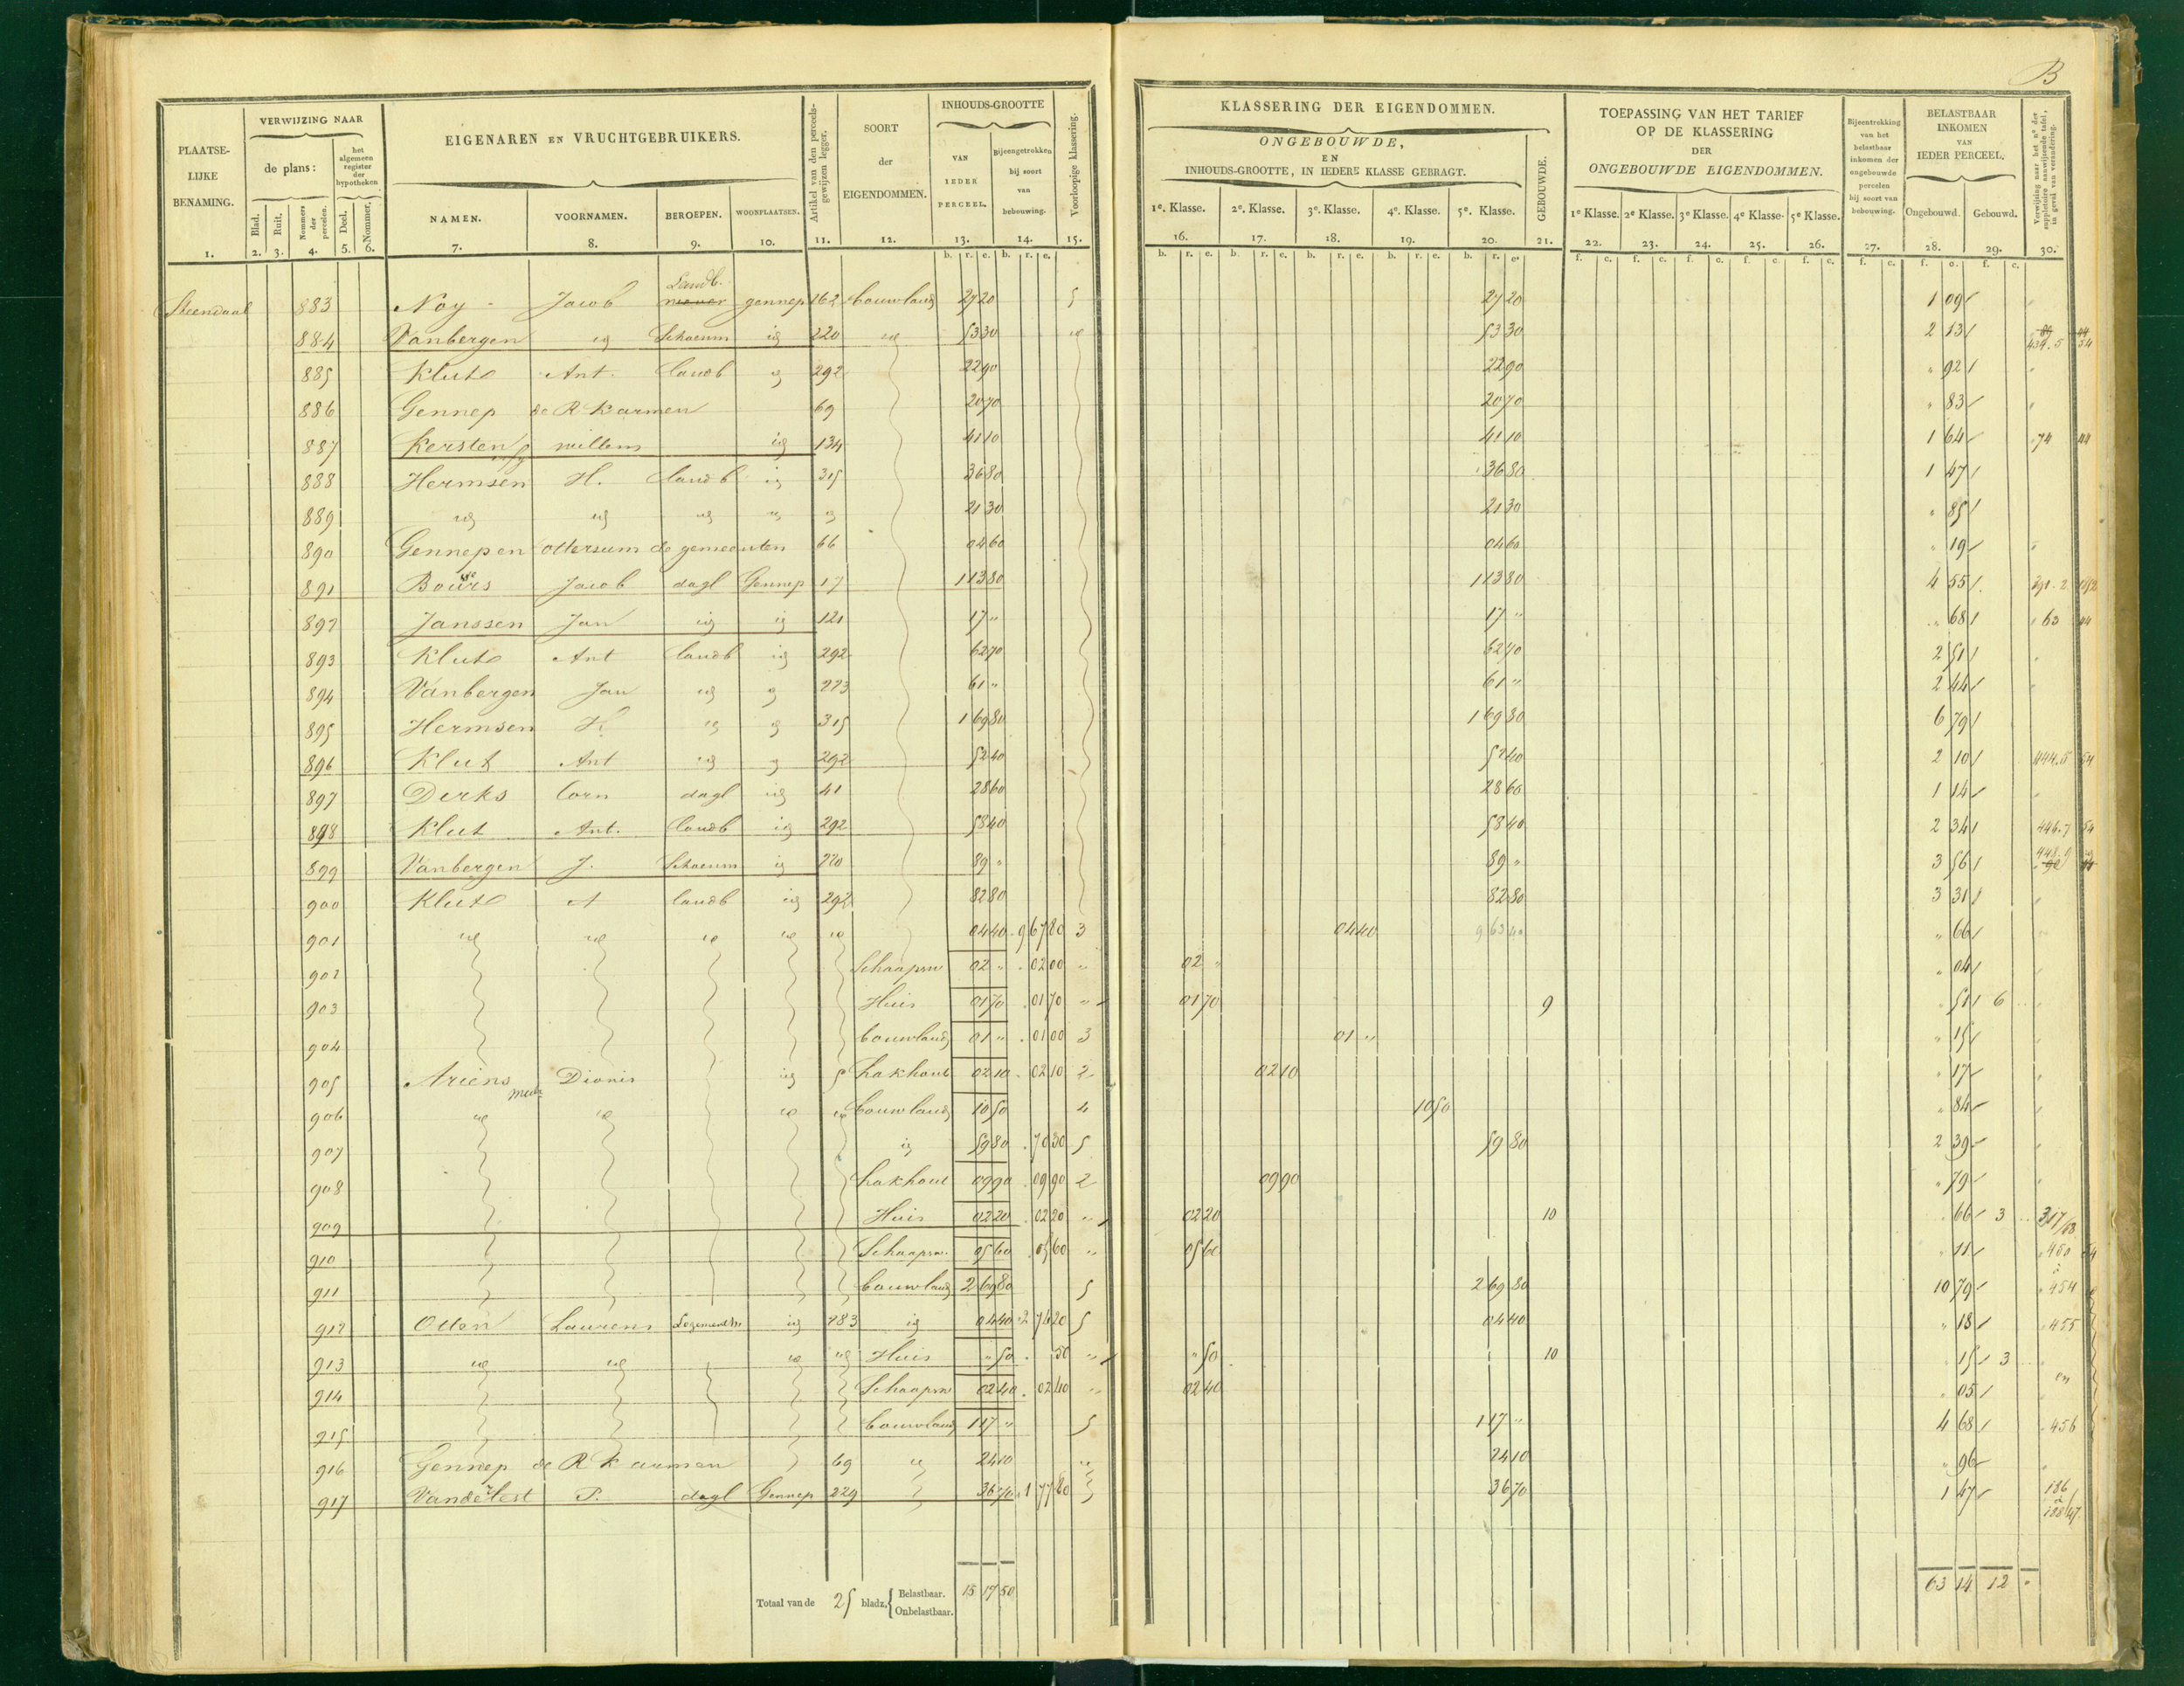 B
PLAATSE-
LIJKE
BENAMING.
VERWIJZING NAAR
de plans:
het algemeen register der hypotheken
Blad. Ruit. Nommers der perceelen. Deel. Nommer.
EIGENAREN EN VRUCHTGEBRUIKERS.
NAMEN. VOORNAMEN. BEROEPEN. WOONPLAATSEN.
Artikel van den perceels-gewijzen legger.
SOORT
der
EIGENDOMMEN.
INHOUDS-GROOTTE
VAN IEDER PERCEEL.
Bijeengetrokken bij soort van bebouwing.
Voorloopige klassering.
1. 2. 3. 4. 5. 6. 7. 8. 9. 10. 11. 12. 13. 14. 15.
b. r. e. b. r. e.
KLASSERING DER EIGENDOMMEN.
ONGEBOUWDE,
EN
INHOUDS-GROOTTE, IN IEDERE KLASSE GEBRAGT.
GEBOUWDE.
1e. Klasse. 2e. Klasse. 3e. Klasse. 4e. Klasse. 5e. Klasse.
16. 17. 18. 19. 20. 21.
b. r. e. b. r. e. b. r. e. b. r. e. b. r. e.
TOEPASSING VAN HET TARIEF
OP DE KLASSERING
DER
ONGEBOUWDE EIGENDOMMEN.
1e Klasse. 2e Klasse. 3e Klasse. 4e Klasse. 5e Klasse.
22. 23. 24. 25. 26.
Bijeentrekking van het belastbaar inkomen der ongebouwde perceelen bij soort van bebouwing.
27.
BELASTBAAR
INKOMEN
VAN
IEDER PERCEEL.
Ongebouwd. Gebouwd.
28. 29.
Verwijzing naar het no. der suppletoire aanwijzende tafel, in geval van verandering.
30.
f. c. f. c. f. c. f. c. f. c. f. c. f. c. f. c.
Landb.
Steendaal 883 Noy Jacob gennep 162 bouwland 27 20 5 27 20 1 09
884 Vanbergen id Schoenm id 220 id 53 30 id 53 30 2 13 434.5 54
885 Klut Ant. landb id 292 22 90 22 90 " 92
886 Gennep de R K armen 69 20 70 20 70 " 83
887 Kersten willem id 134 41 10 41 10 1 64 74 44
888 Hermsen H. landb id 315 36 80 36 80 1 47
889 id id id id id 21 30 21 30 " 85
890 Gennep en Ottersum de gemeenten 66 04 60 04 60 " 19
891 Bours Jacob dagl Gennep 17 1 13 80 1 13 80 4 55 391.2
892 Janssen Jan id id 121 17 " 17 " " 68 63 44
893 Klut Ant landb id 292 62 70 62 70 2 51
894 Vanbergen Jan id id 223 61 " 61 " 2 44
895 Hermsen H. id id 315 1 69 80 1 69 80 6 79
896 Klut Ant id id 292 52 40 52 40 2 10 54
897 Derks Corn dagl id 41 28 60 28 60 1 14
898 Klut Ant. landb id 292 58 40 58 40 2 34 446.7 54
899 Vanbergen J. Schoenm id 220 89 " 89 " 3 56
900 Klut A landb id 292 82 80 82 80 3 31
901 id id id id id 04 40 9 67 80 3 04 40 9 63 40 " 66
902 Schaapsw 02 " 02 00 " 02 " " 04
903 Huis 01 70 01 70 " 01 70 9 51 6
904 bouwland 01 " 01 00 3 01 " " 15
905 Ariens Dionis id 5 hakhout 02 10 02 10 2 02 10 " 17
906 id id id id bouwland 10 50 4 10 50 " 84
907 id 59 80 70 30 5 59 80 2 39
908 hakhout 09 90 09 90 2 09 90 " 79
909 Huis 02 20 02 20 " 02 20 10 66 3 317/63
910 Schaapsw. 05 60 05 60 " 05 60 11 450 54
911 bouwland 2 69 80 5 2 69 80 10 79 454
912 Otten Laurens Logementh. id 283 id 04 40 2 74 20 5 04 40 " 18 455
913 id id id id Huis " 50 50 " " 50 10 15 3
914 Schaapsw 02 40 02 40 " 02 40 05
915 bouwland 1 17 " 5 1 17 " 4 68 456
916 Gennep de R K armen 69 id 24 10 " 24 10 " 96
917 Vanderlest P. dagl Gennep 229 36 70 1 77 80 36 70 1 47 186
Totaal van de 25 bladz. Belastbaar. 15 17 50 63 14 12 "
Onbelastbaar.